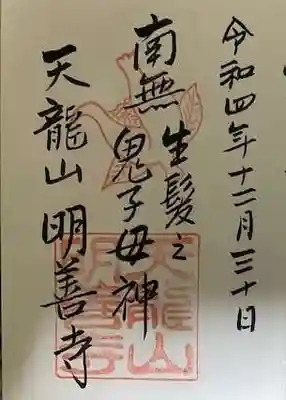 令和四年十二月三十日
南無生髪之
鬼子母神
天龍山明善寺
天龍山
明善寺